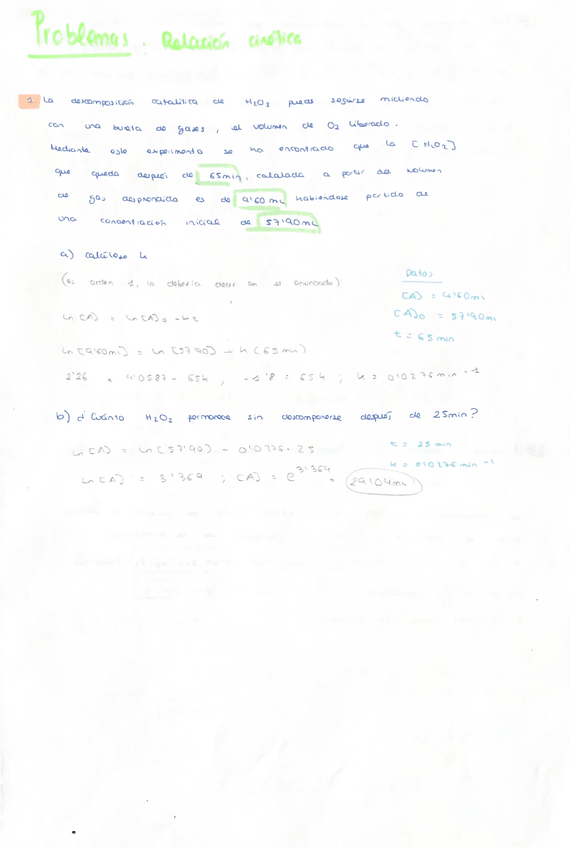 Problemas. Relación cinética
1. La descomposición catalítica de H2O2 puede seguirse midiendo
con una bureta de gases, el volumen de O2 liberado.
Mediante este experimento se ha encontrado que la [H2O2]
que queda después de 65min, calculada a partir del volumen
de gas desprendido es de 9'60 mL habiéndose partido de
una concentración inicial de 57'90mL
a) Calcúlese k
(es orden 1, lo debería decir en el enunciado)
Datos
[A] = 9'60ml
[A]0 = 57'90ml
t = 65min
Ln [A] = Ln [A]0 - kt
Ln [9'60ml] = Ln [57'90] - k (65min)
2'26 = 4'0587 - 65k , -1'8 = 65k ; k = 0'0276 min-1
b) ¿Cuánto H2O2 permanece sin descomponerse después de 25min?
Ln [A] = Ln [57'90] - 0'0276 · 25
t = 25 min
k = 0'0276 min-1
Ln [A] = 3'369 ; [A] = e3'369 = 29'04mL